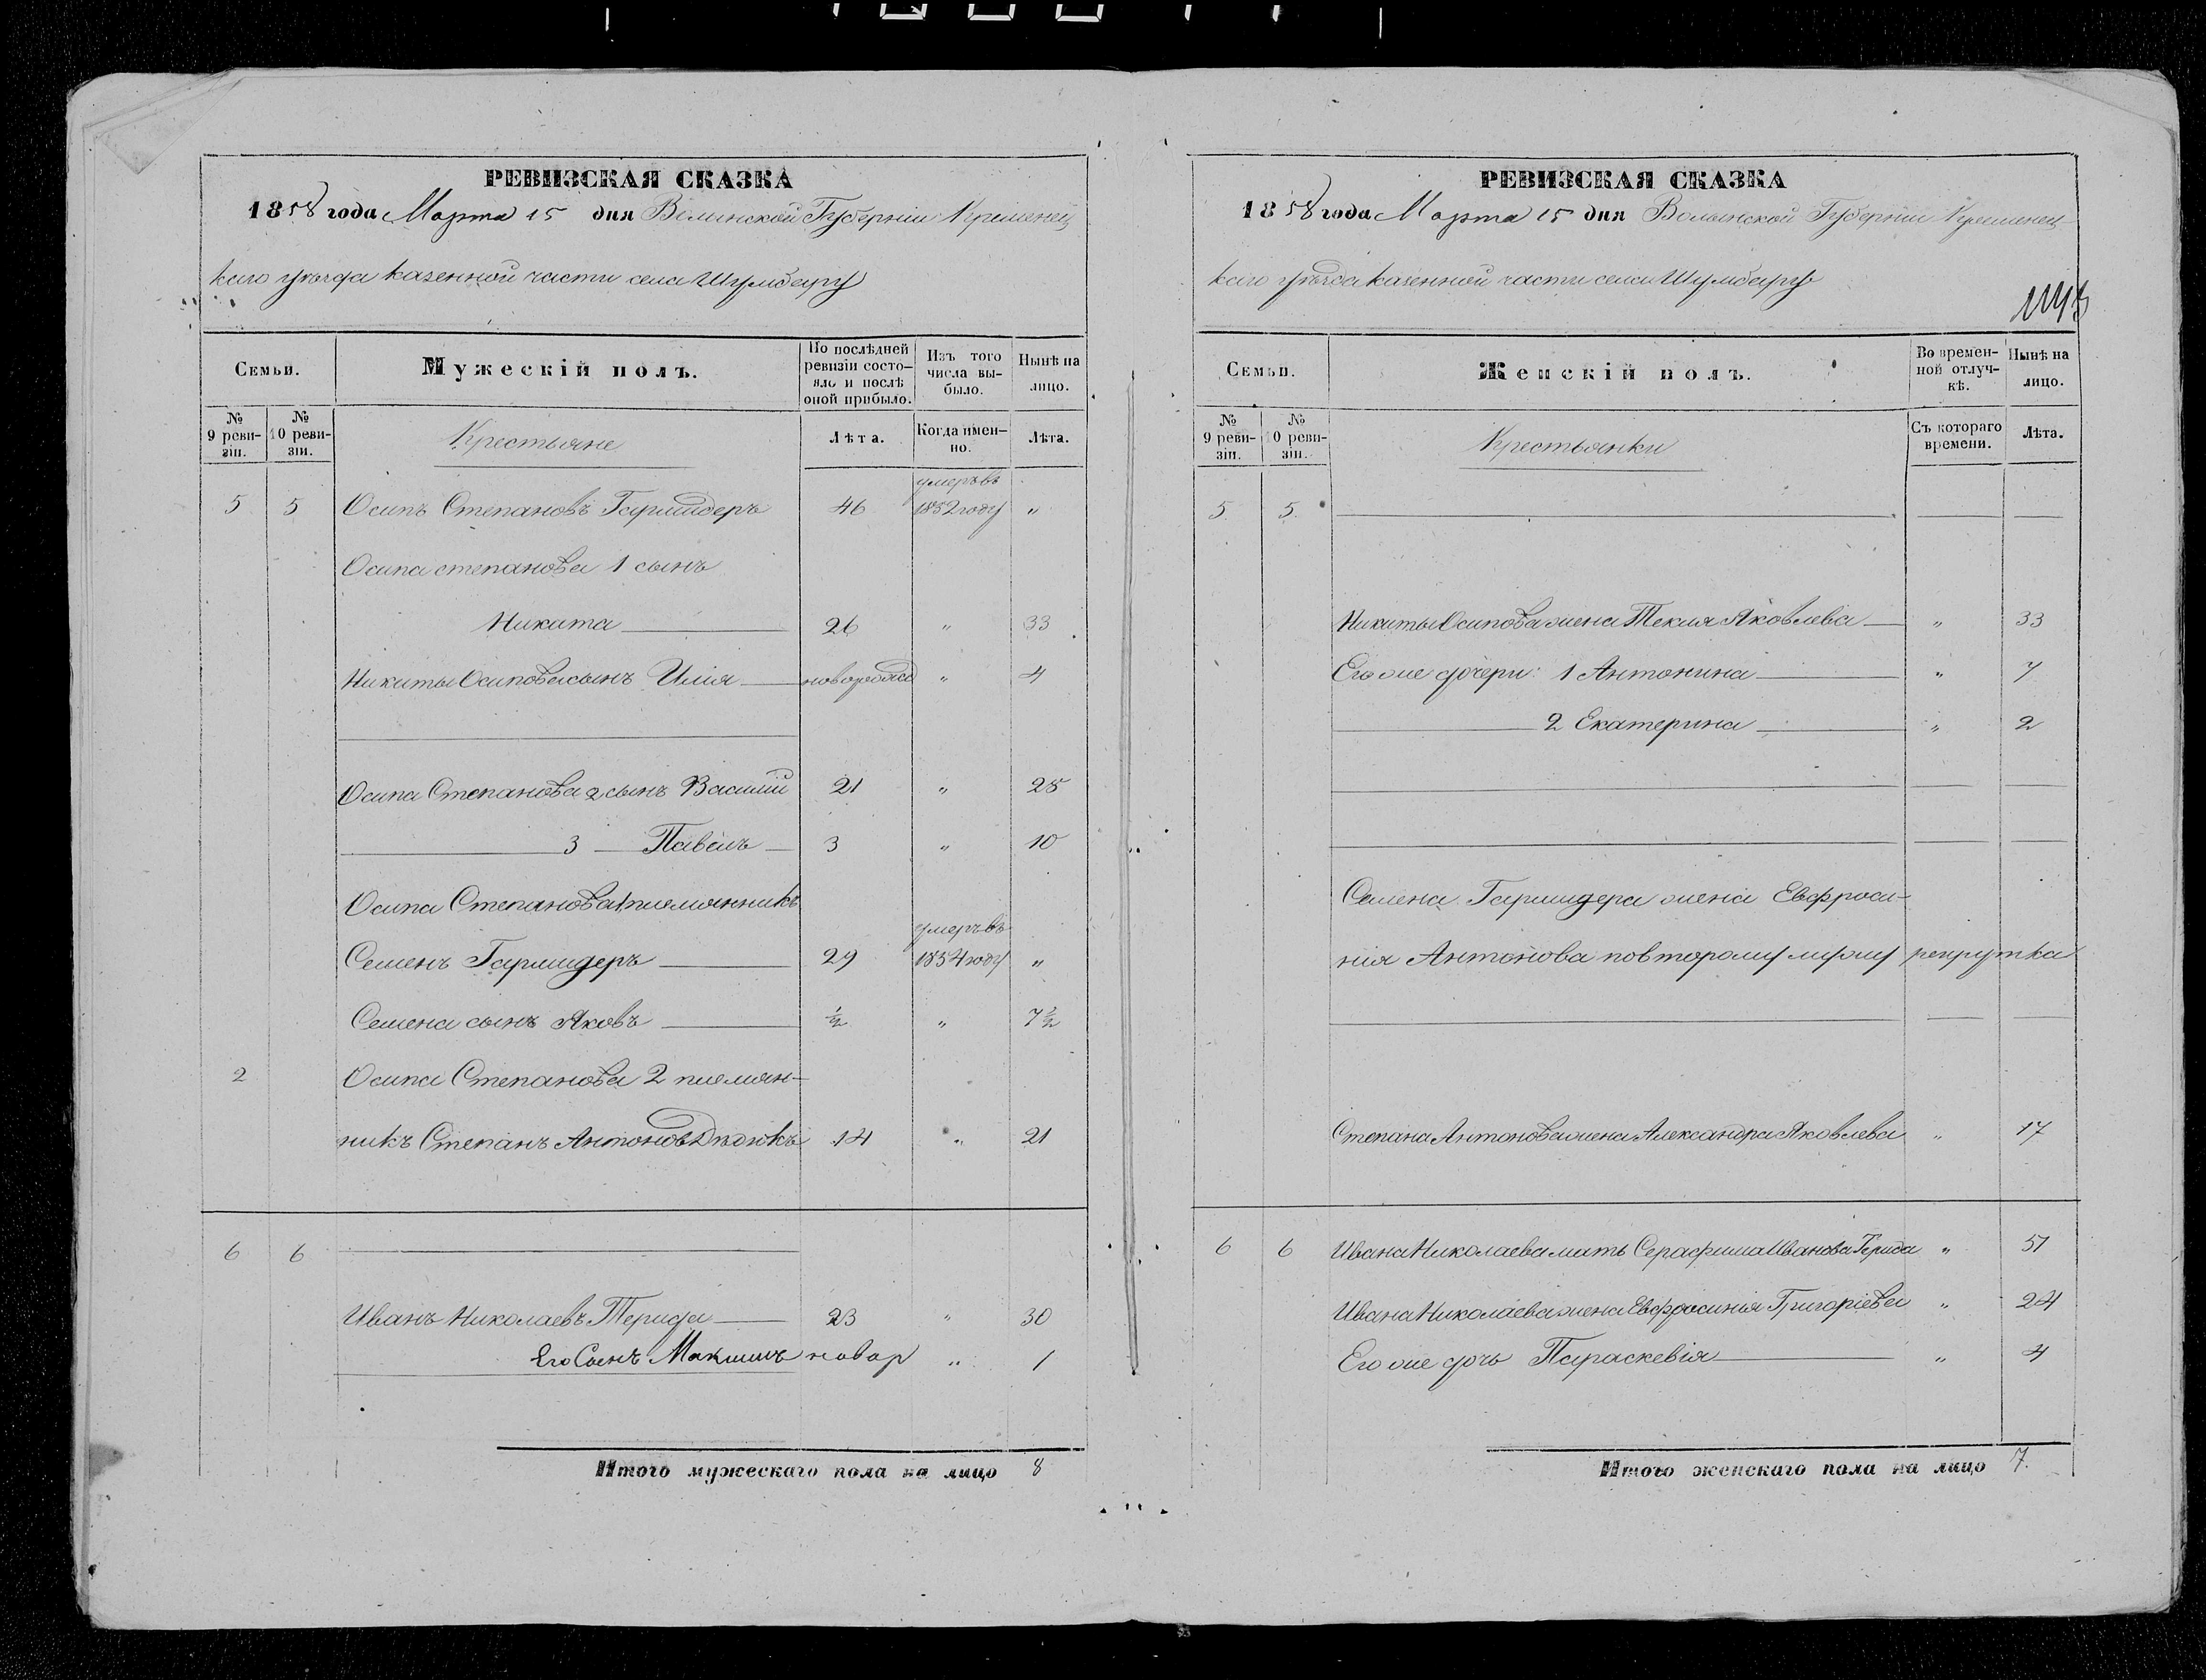 РЕВИЗСКАЯ СКАЗКА
1858 года Марта 15 дня Волынской Губерніи Кременец
каго уѣзда казенной части села Шумбару
Семьи.
Мужескій полъ.
По послѣдней ревизіи состояло и послѣ оной прибыло.
Изъ того числа выбыло.
Нынѣ на лицо.
№ 9 ревизіи.
№ 10 ревизіи.
Крестьяне
Лѣта.
Когда именно.
Лѣта.
умеръ въ
5 5 Осипъ Степановъ 46 1852 году "
Осипа степанова 1 сынъ
Никита 26 " 33
Никиты Осипова сынъ Илія новорожд " 4
Осипа Степанова 2 сынъ Василій 21 " 28
3 Павелъ 3 " 10
Осипа Степанова 1 племянникъ
умеръ въ
Семенъ Гармидеръ 29 1854 году "
Семена сынъ Яковъ ½ " 7½
2 Осипа Степанова 2 племян-
никъ Степанъ Антоновъ 14 " 21
6 6
Иванъ Николаевъ 23 " 30
Его Сынъ Максимъ новор " 1
Итого мужескаго пола на лицо 8
РЕВИЗСКАЯ СКАЗКА
1858 года Марта 15 дня Волынской Губерніи Кременец
каго уѣзда казенной части села Шумбару
Семьи.
Женскій полъ.
Во временной отлучкѣ.
Нынѣ на лицо.
№ 9 ревизіи.
№ 10 ревизіи.
Крестьянки
Съ котораго времени.
Лѣта.
5 5
Никиты Осипова жена Текля Яковлева " 33
Его же дочери: 1 Антонина " 7
2 Екатерина " 2
Семена Гармидера жена Евфроси-
нія Антонова по второму мужу рекрутка
Степана Антонова жена Александра Яковлева " 17
6 6 Ивана Николаева мать Серафима Иванова " 51
Ивана Николаева жена Евфросинія Григоріева " 24
Его же дочь Параскевія " 4
Итого женскаго пола на лицо 7.